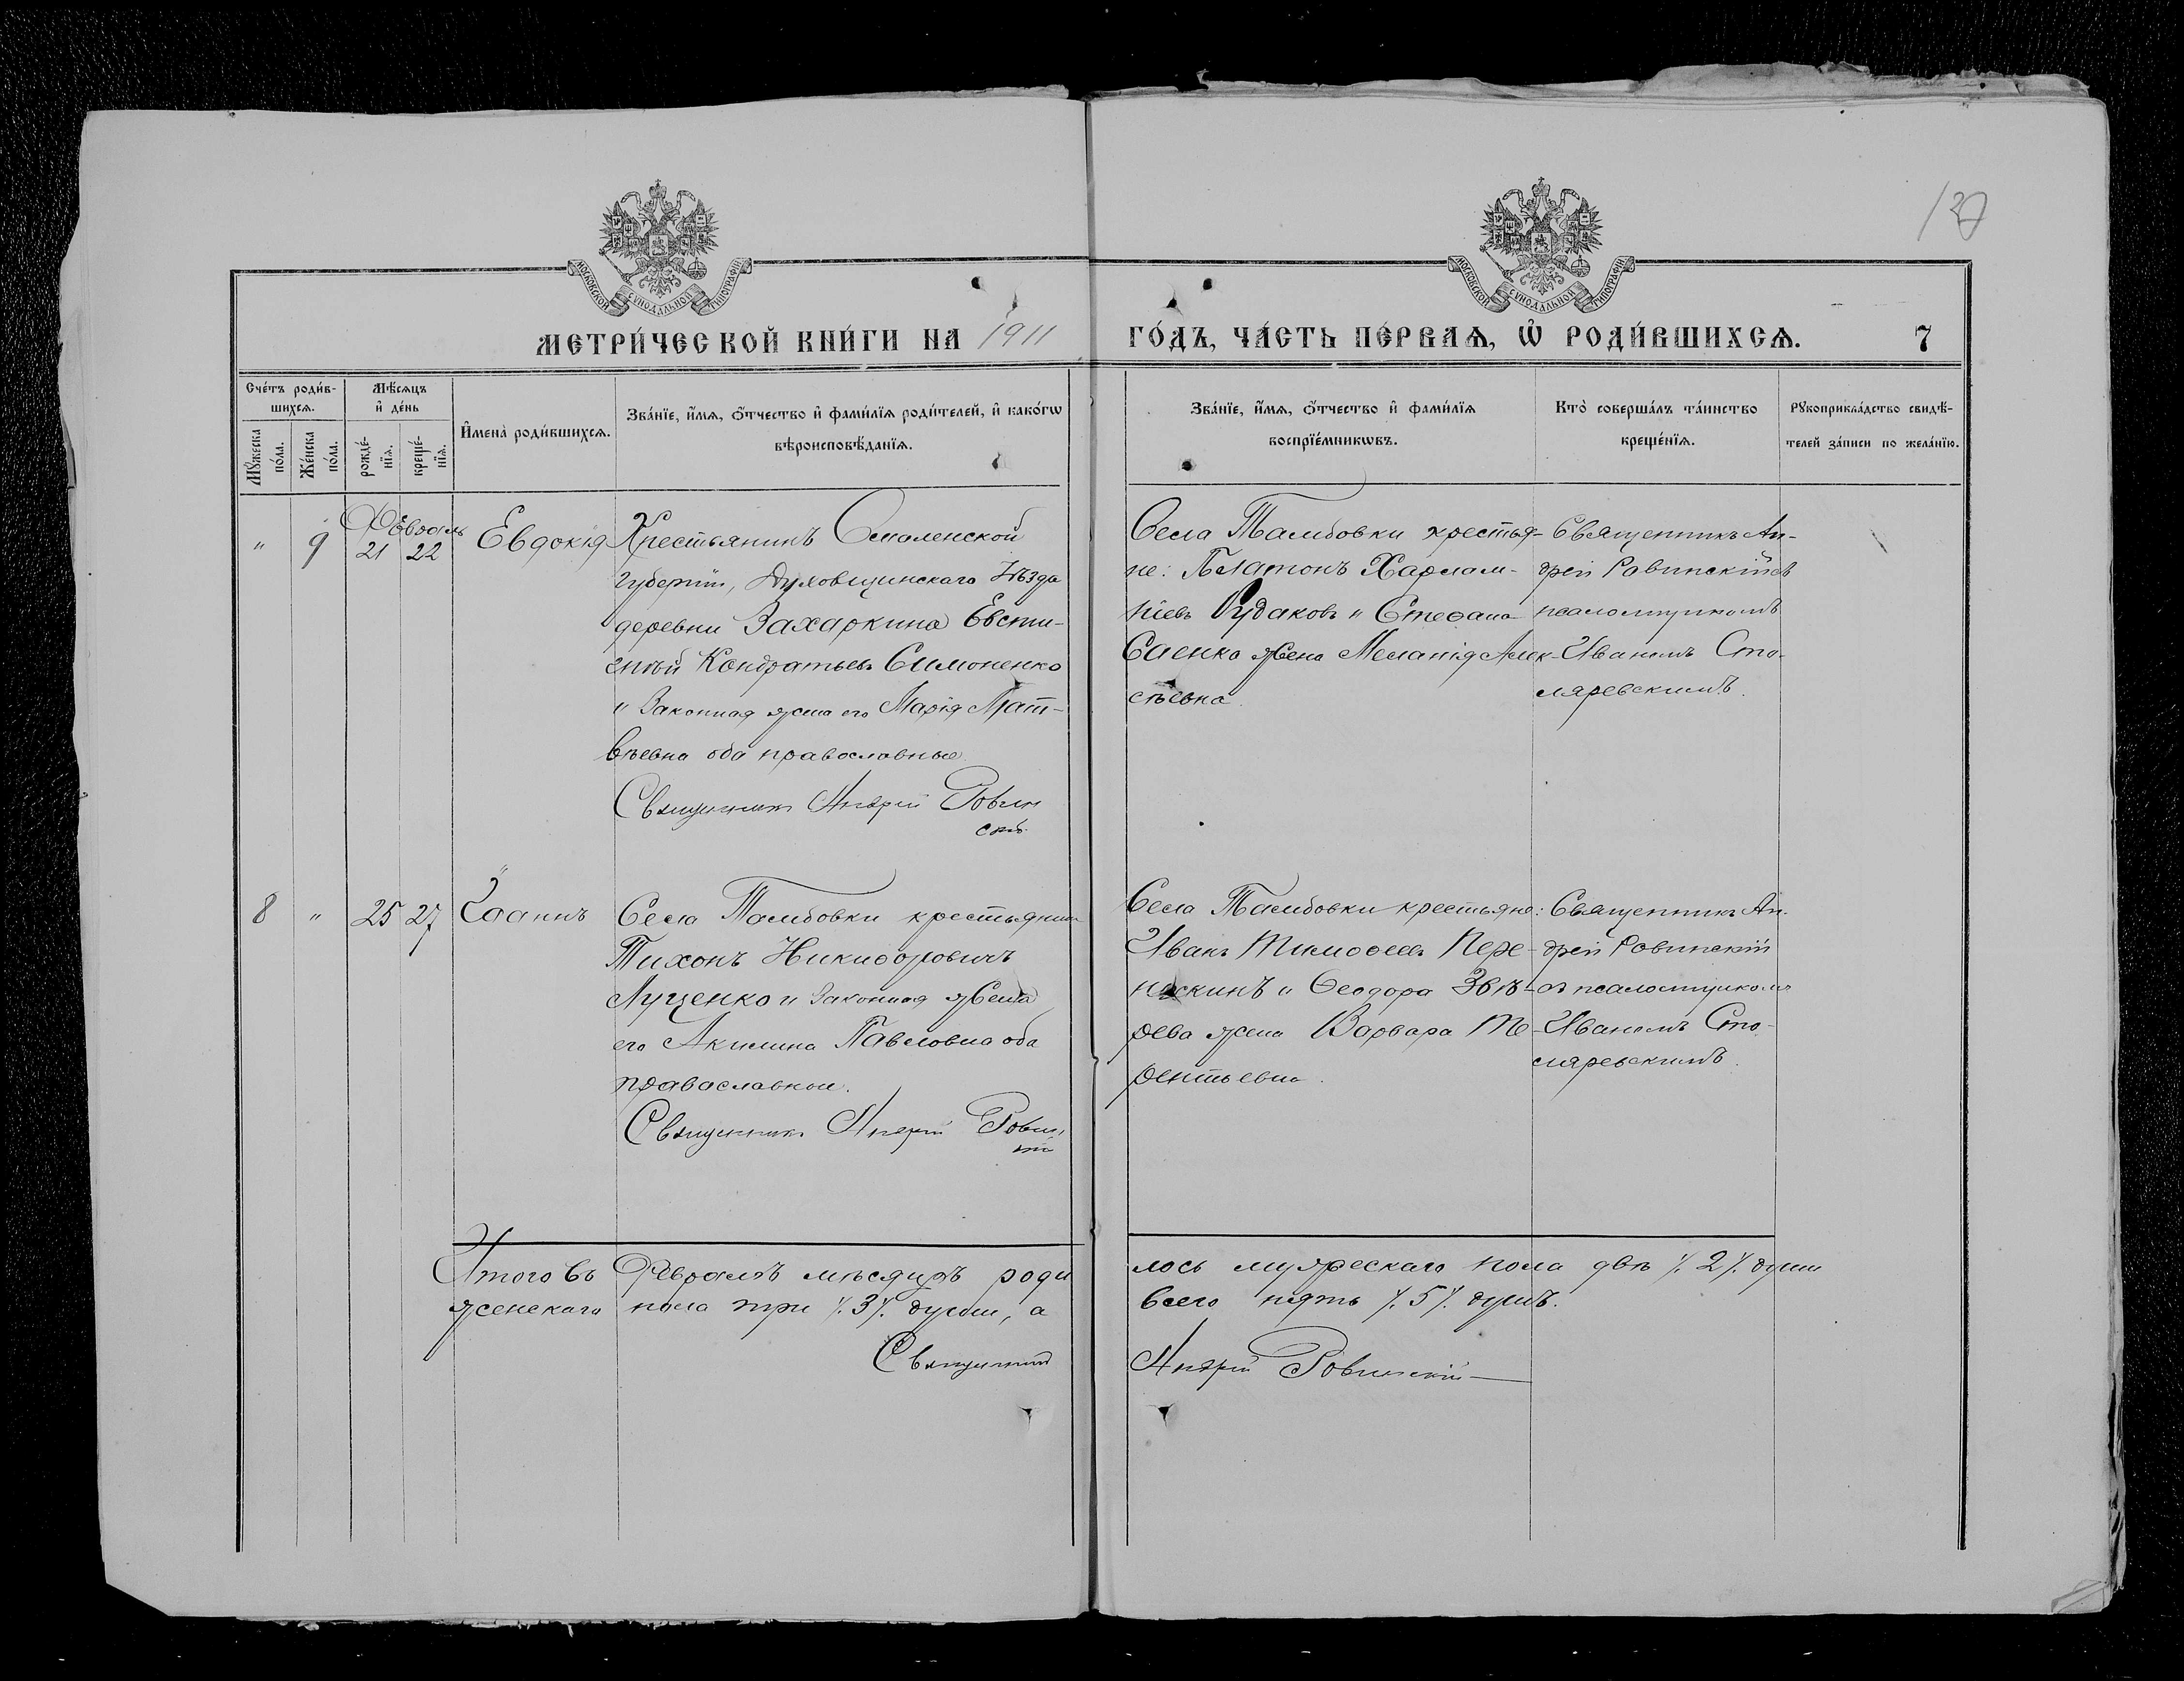 130
МОСКОВСКОЙ СѴНОДАЛЬНОЙ ТИПОГРАФІИ
МОСКОВСКОЙ СѴНОДАЛЬНОЙ ТИПОГРАФІИ
МЕТРИ́ЧЕСКОЙ КНИ́ГИ НА 1911 ГО́ДЪ, ЧА́СТЬ ПЕ́РВАѦ, Ѡ҆ РОДИ́ВШИХСѦ. 7
Сче́тъ роди́в-
шихсѧ.
Мꙋ́жеска по́ла.
Же́нска по́ла.
Мѣ́сѧцъ
и҆ де́нь
рожде́-
нїѧ.
креще́-
нїѧ.
И҆мена̀ роди́вшихсѧ.
Зва́нїе, и҆́мѧ, ѻ҆́тчество и҆ фами́лїѧ роди́телей, и҆ како́гѡ
вѣроисповѣ́данїѧ.
Зва́нїе, и҆́мѧ, ѻ҆́тчество и҆ фами́лїѧ
воспрїе́мникѡвъ.
Кто̀ соверша́лъ та́инство
креще́нїѧ.
Рꙋкоприкла́дство свидѣ́-
телей за́писи по жела́нїю.
Февраль
" 9 21 22 Евдокія
Крестьянинъ Смоленской
губерніи, Духовщинскаго уѣзда
деревни Захаркина Евсти-
гнѣй Кондратьевъ Симоненко
и законная жена его Марія Мат-
вѣевна оба православные
Священникъ Андрей Ровин
скій
Села Тамбовки крестья-
не: Платонъ Харлам-
піевъ Рудаковъ и Стефана
Саенко жена Меланія Алек-
сѣевна.
Священникъ Ан-
дрей Равинскій съ
псаломщикомъ
Иваномъ Сто-
ляревскимъ.
8 " 25 27 Іоаннъ
Села Тамбовки крестьянинъ
Тихонъ Никифоровичъ
Луценко и законная жена
его Акилина Павловна оба
православные.
Священникъ Андрей Ровин
Села Тамбовки крестьяне:
Иванъ Тимофеевъ Пере-
и Феодора Звѣ-
рева жена Варвара Те-
рентьевна.
Священникъ Ан-
дрей Ровинскій
съ псаломщикомъ
Иваномъ Сто-
ляревскимъ.
Итого въ Февралѣ мѣсяцѣ роди лось мужескаго пола двѣ ٪ 2 ٪ души
женскаго пола три ٪ 3 ٪ души, а всего пять ٪ 5 ٪ душъ.
Священникъ Андрей Ровинскій